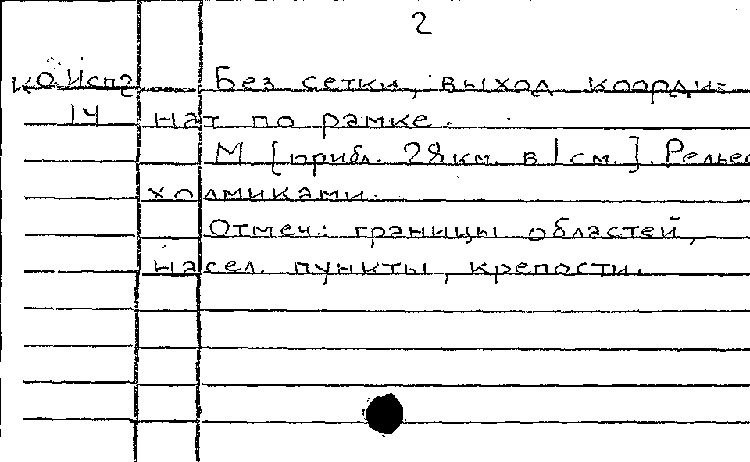 2
КО Исп2 Без сетки, выход коорди-
14 нат по рамке.
М [прибл. 28 км. в 1 см.] Рельеф
холмиками.
Отмеч: границы областей,
насел. пункты, крепости.